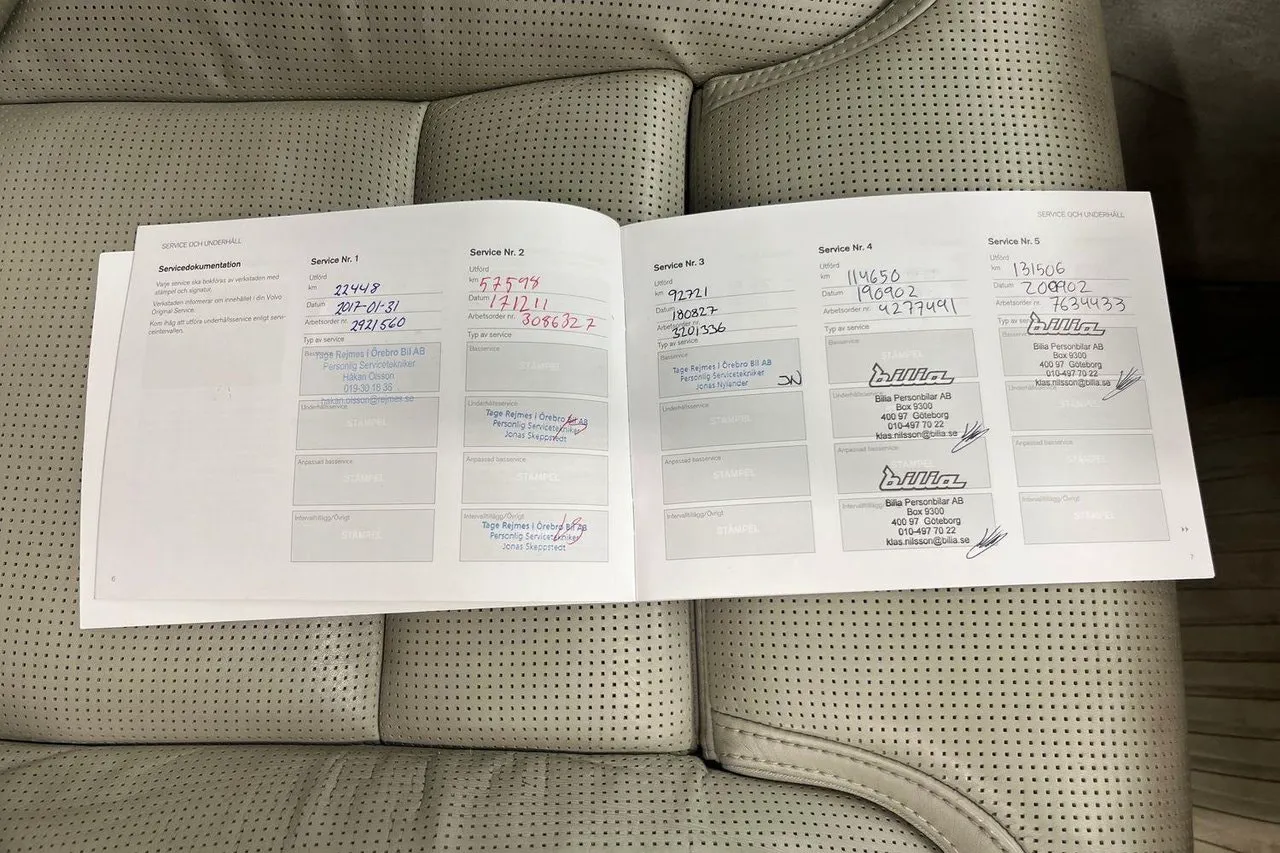 SERVICE OCH UNDERHÅLL
Servicedokumentation
Varje service ska bokföras av verkstaden med
stämpel och signatur.
Verkstaden informerar om innehållet i din Volvo
Original Service.
Kom ihåg att utföra underhållsservice enligt serv-
iceintervallen.
6
Service Nr. 1
Utförd
km 22448
Datum 2017-01-31
Arbetsorder nr. 2921560
Typ av service
Basservice
Tage Rejmes i Örebro Bil AB
Personlig Servicetekniker
Håkan Olsson
019-30 18 36
hakan.olsson@rejmes.se
Underhållsservice
STÄMPEL
Anpassad basservice
STÄMPEL
Intervalltillägg/Övrigt
STÄMPEL
Service Nr. 2
Utförd
km 57598
Datum 171211
Arbetsorder nr. 3086327
Typ av service
Basservice
STÄMPEL
Underhållsservice
Tage Rejmes i Örebro Bil AB
Personlig Servicetekniker
Jonas Skeppstedt
Anpassad basservice
STÄMPEL
Intervalltillägg/Övrigt
Tage Rejmes i Örebro Bil AB
Personlig Servicetekniker
Jonas Skeppstedt
Service Nr. 3
Utförd
km 92721
Datum 180827
Arbetsorder nr. 3201336
Typ av service
Basservice
Tage Rejmes i Örebro Bil AB
Personlig Servicetekniker
Jonas Nylander
JN
Underhållsservice
STÄMPEL
Anpassad basservice
STÄMPEL
Intervalltillägg/Övrigt
STÄMPEL
Service Nr. 4
Utförd
km 114650
Datum 190902
Arbetsorder nr. 4277491
Typ av service
STÄMPEL
bilia
Underhållsservice
Bilia Personbilar AB
Box 9300
400 97 Göteborg
010-497 70 22
klas.nilsson@bilia.se
Anpassad basservice
STÄMPEL
bilia
Intervalltillägg/Övrigt
Bilia Personbilar AB
Box 9300
400 97 Göteborg
010-497 70 22
klas.nilsson@bilia.se
SERVICE OCH UNDERHÅLL
Service Nr. 5
Utförd
km 131506
Datum 200902
Arbetsorder nr. 7634433
Typ av service
bilia
Bilia Personbilar AB
Box 9300
400 97 Göteborg
010-497 70 22
klas.nilsson@bilia.se
Underhållsservice
STÄMPEL
Anpassad basservice
STÄMPEL
Intervalltillägg/Övrigt
STÄMPEL
7